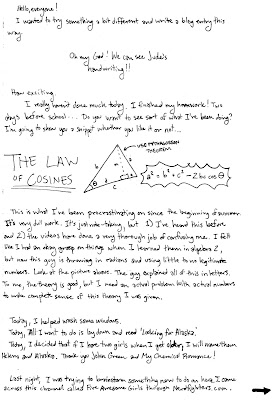 Hello, everyone!
I wanted to try something a bit different and write a blog entry this
way.
Oh my God! We can see Jude's
handwriting!!
How exciting.
I really haven't done much today. I finished my homework! Two
days before school... Do you want to see sort of what I've been doing?
I'm going to show you a snippet whether you like it or not...
THE LAW
OF COSINES
USE PYTHAGOREAN
THEOREM
θ
a² = b² + c² - 2bc cos θ
This is what I've been procrastinating on since the beginning of summer.
It's very dull work. It's just note-taking, but 1) I've heard this before
and 2) the videos have done a very thorough job of confusing me. I felt
like I had an okay grasp on things when I learned them in algebra 2,
but now this guy is throwing in radians and using little to no legitimate
numbers. Look at the picture above. The guy explained all of this in letters.
To me, the theory is good, but I need an actual problem with actual numbers
to make complete sense of this theory I was given.
Today, I helped wash some windows.
Today, all I want to do is lay down and read Looking for Alaska.
Today, I decided that if I have two girls when I get older, I will name them
Helena and Alaska. Thank you John Green and My Chemical Romance!
Last night, I was trying to brainstorm something new to do on here. I came
across this channel called Five Awesome Girls through Nerdfighters.com.